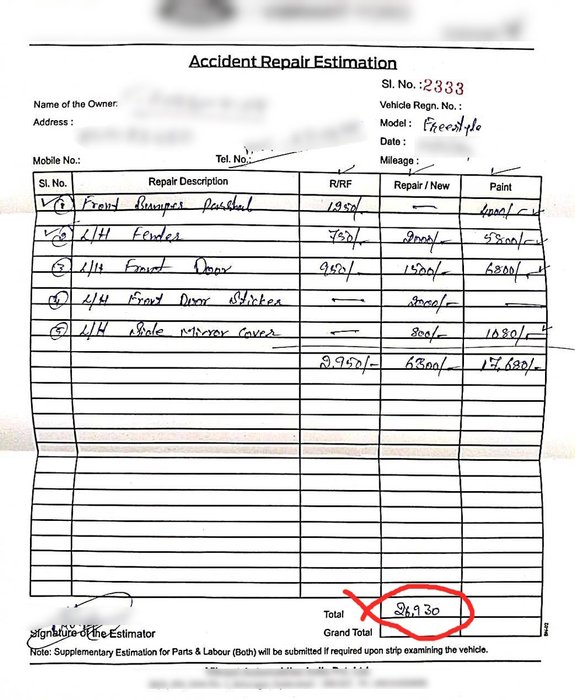 Accident Repair Estimation
Sl. No.: 2333
Name of the Owner:
Vehicle Regn. No. :
Address :
Model : Freestyle
Date :
Mobile No.: Tel. No.: Mileage :
Sl. No. Repair Description R/RF Repair / New Paint
1 Front Bumper 1250/- — 4000/-
2 L/H Fender 750/- 2000/- 5800/-
3 L/H Front Door 950/- 1500/- 6800/-
4 L/H Front Door Sticker — 2000/- —
5 L/H Side Mirror Cover — 800/- 1080/-
2,950/- 6300/- 17,680/-
Total 26,930
Grand Total
Signature of the Estimator
Note: Supplementary Estimation for Parts & Labour (Both) will be submitted if required upon strip examining the vehicle.